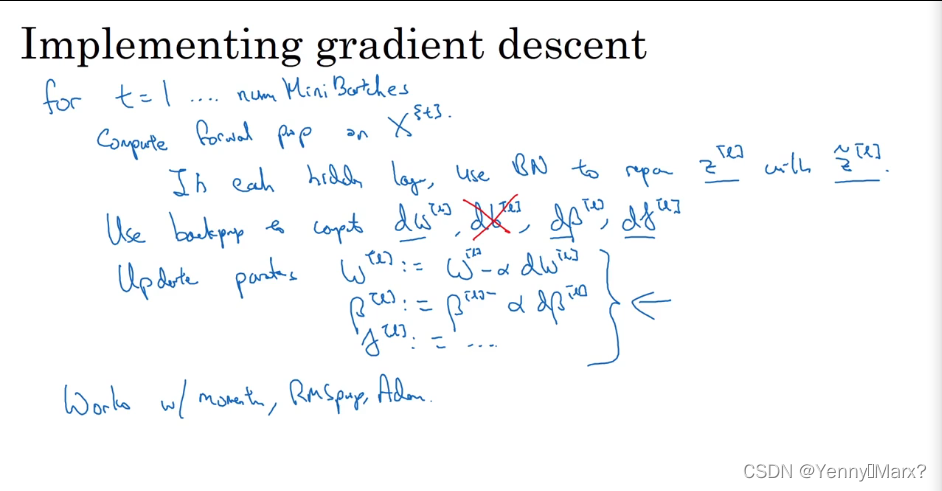 Implementing gradient descent
for t = 1 .... num Mini Batches
Compute forwal pop on X^{t}.
In eah hidden lay, use BN to repa z^[l] with z̃^[l].
Use backprop to compt dw^[l], db^[l], dβ^[l], dγ^[l]
Update parates w^[l] := w^[l] - α dw^[l]
β^[l] := β^[l] - α dβ^[l]
γ^[l] := ....
Works w/ momentm, RMSprop, Adam.
CSDN @Yenny Marx?